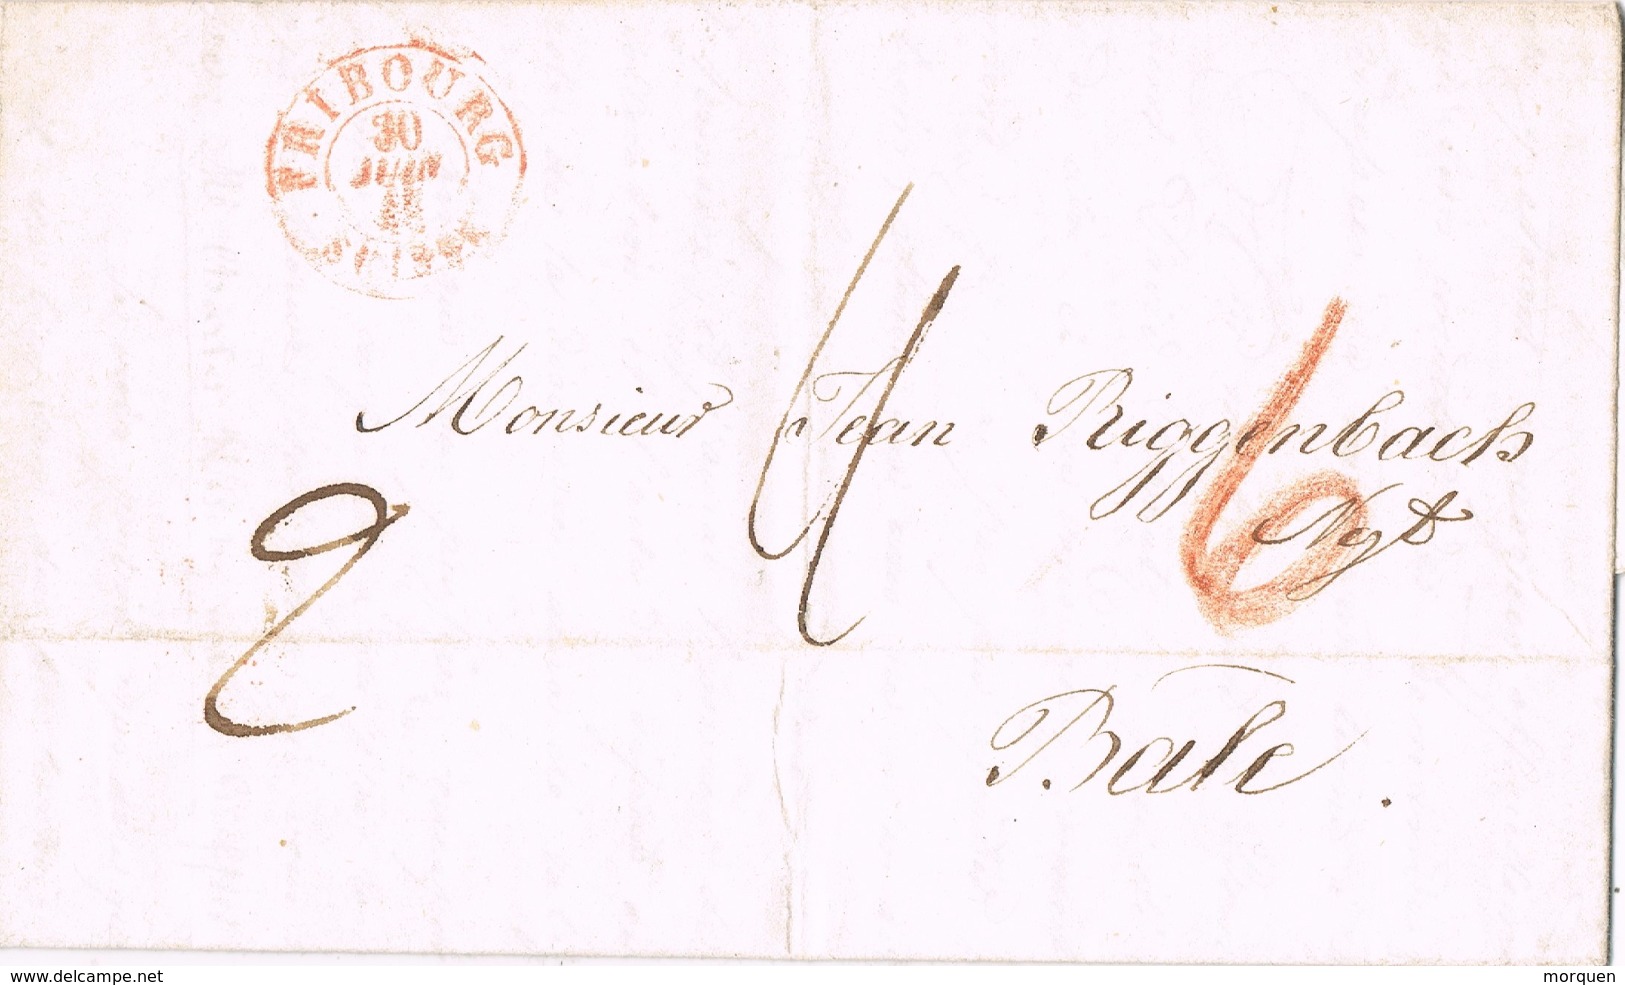 FRIBOURG
30
JUIN
SUISSE
Monsieur Jean Riggenbach
Negt
2
4
6
Bâle.
www.delcampe.net
morquen